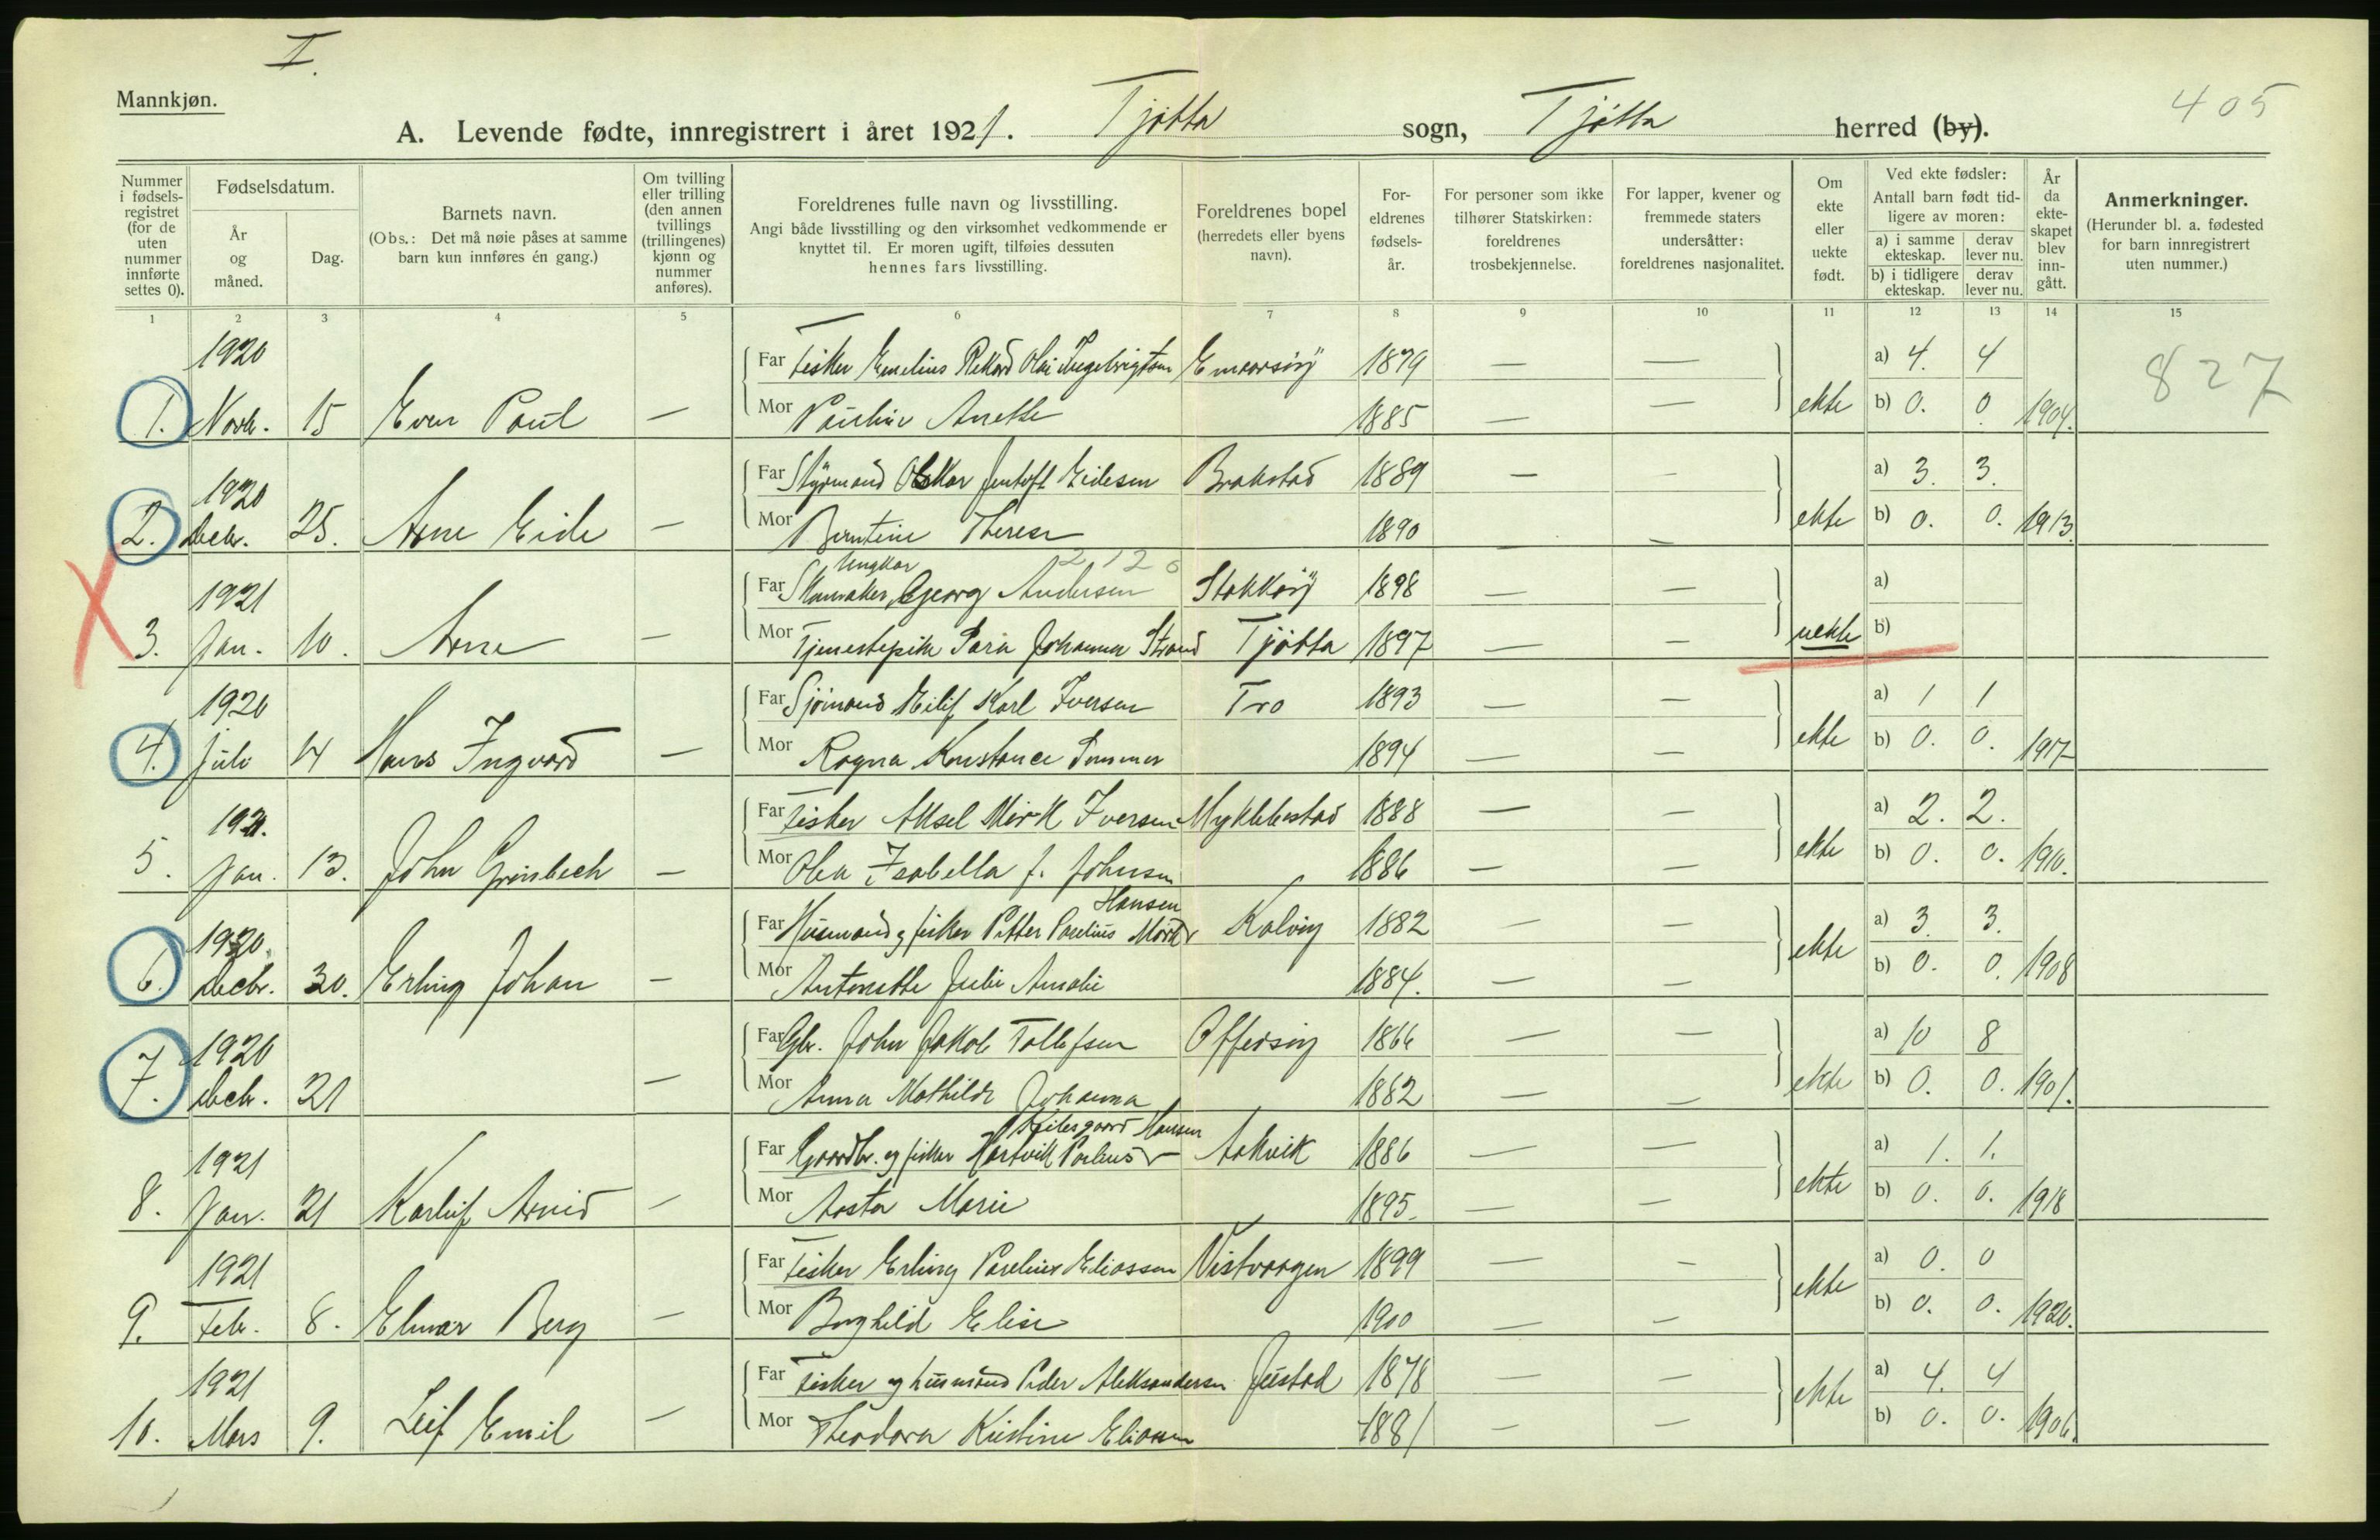 I.
Mannkjøn.
405
A. Levende fødte, innregistrert i året 1921. Tjøtta sogn, Tjøtta herred (by).
Nummer i fødsels-registret (for de uten nummer innførte settes 0).
Fødselsdatum.
År og måned.
Dag.
Barnets navn.
(Obs.: Det må nøie påses at samme barn kun innføres én gang.)
Om tvilling eller trilling (den annen tvillings (trillingenes) kjønn og nummer anføres).
Foreldrenes fulle navn og livsstilling.
Angi både livsstilling og den virksomhet vedkommende er knyttet til. Er moren ugift, tilføies dessuten hennes fars livsstilling.
Foreldrenes bopel (herredets eller byens navn).
For-eldrenes fødsels-år.
For personer som ikke tilhører Statskirken: foreldrenes trosbekjennelse.
For lapper, kvener og fremmede staters undersåtter: foreldrenes nasjonalitet.
Om ekte eller uekte født.
Ved ekte fødsler: Antall barn født tid-ligere av moren:
a) i samme ekteskap. derav lever nu.
b) i tidligere ekteskap. derav lever nu.
År da ekte-skapet blev inn-gått.
Anmerkninger.
(Herunder bl. a. fødested for barn innregistrert uten nummer.)
1 2 3 4 5 6 7 8 9 10 11 12 13 14 15
1920 Far Fisker Emelius Rikard Olai Ingebrigtsen 1879 — — a) 4. 4 827
1. Novbr. 15 Even Paul — Mor Pauline Anette 1885 — — ekte b) 0. 0 1904.
1920 Far Styrmand Oskar Jentoft Eidesen Brakstad 1889 — — a) 3. 3.
2. Decbr. 25. Arne Eide — Mor Berntine Therese 1890 — — ekte b) 0. 0. 1913.
Ungkar 2 12 0
1921 Far Skomaker Georg Andersen Stokkøy 1898 — — a)
3. Jan. 10. Arne — Mor Tjenestepike Sara Johanna Strand Tjøtta 1897 — — uekte b)
1920 Far Sjømand Eilif Karl Iversen Tro 1893 — — a) 1 1
4. Juli 14 Hans Ingvard — Mor Ragna Konstance 1894 — — ekte b) 0. 0. 1917
1921. Far Fisker Aksel Mørk Iversen Myklebustad 1888 — — a) 2. 2.
5. Jan. 13. John Grønbech — Mor Olea Isabella f. Johnsen 1886 — — ekte b) 0. 0. 1910.
Hansen
1920. Far Husmand og fisker Petter Parelius Mørk Kalvøy 1882 — — a) 3. 3.
6. Decbr. 30. Erling Johan — Mor Antonette Julie Amalie 1884. — — ekte b) 0. 0. 1908
1920 Far Gbr. John Jakob Tollefsen Offersøy 1866 — — a) 10 8
7. Decbr. 21 — Mor Anna Mathilde Johanna 1882 — — ekte b) 0. 0. 1901.
Hansen
1921 Far Gaardbr. og fisker Hartvik Parelius Aakvik 1886 — — a) 1. 1.
8. Jan. 21 Karleif Arnid — Mor Aasta Marie 1895. — — ekte b) 0. 0. 1918
1921 Far Fisker Erling Parelius Eliassen Vistvaagen 1899 — — a) 0. 0
9. Febr. 8. Elmar Berg — Mor Borghild Elise 1900 — — ekte b) 0. 0. 1920.
1921 Far Fisker og husmand Peder Aleksandersen Justad 1878 — — a) 4. 4
10. Mars 9. Leif Emil — Mor Theodora Kristine Eliassen 1881 — — ekte b) 0. 0. 1906.